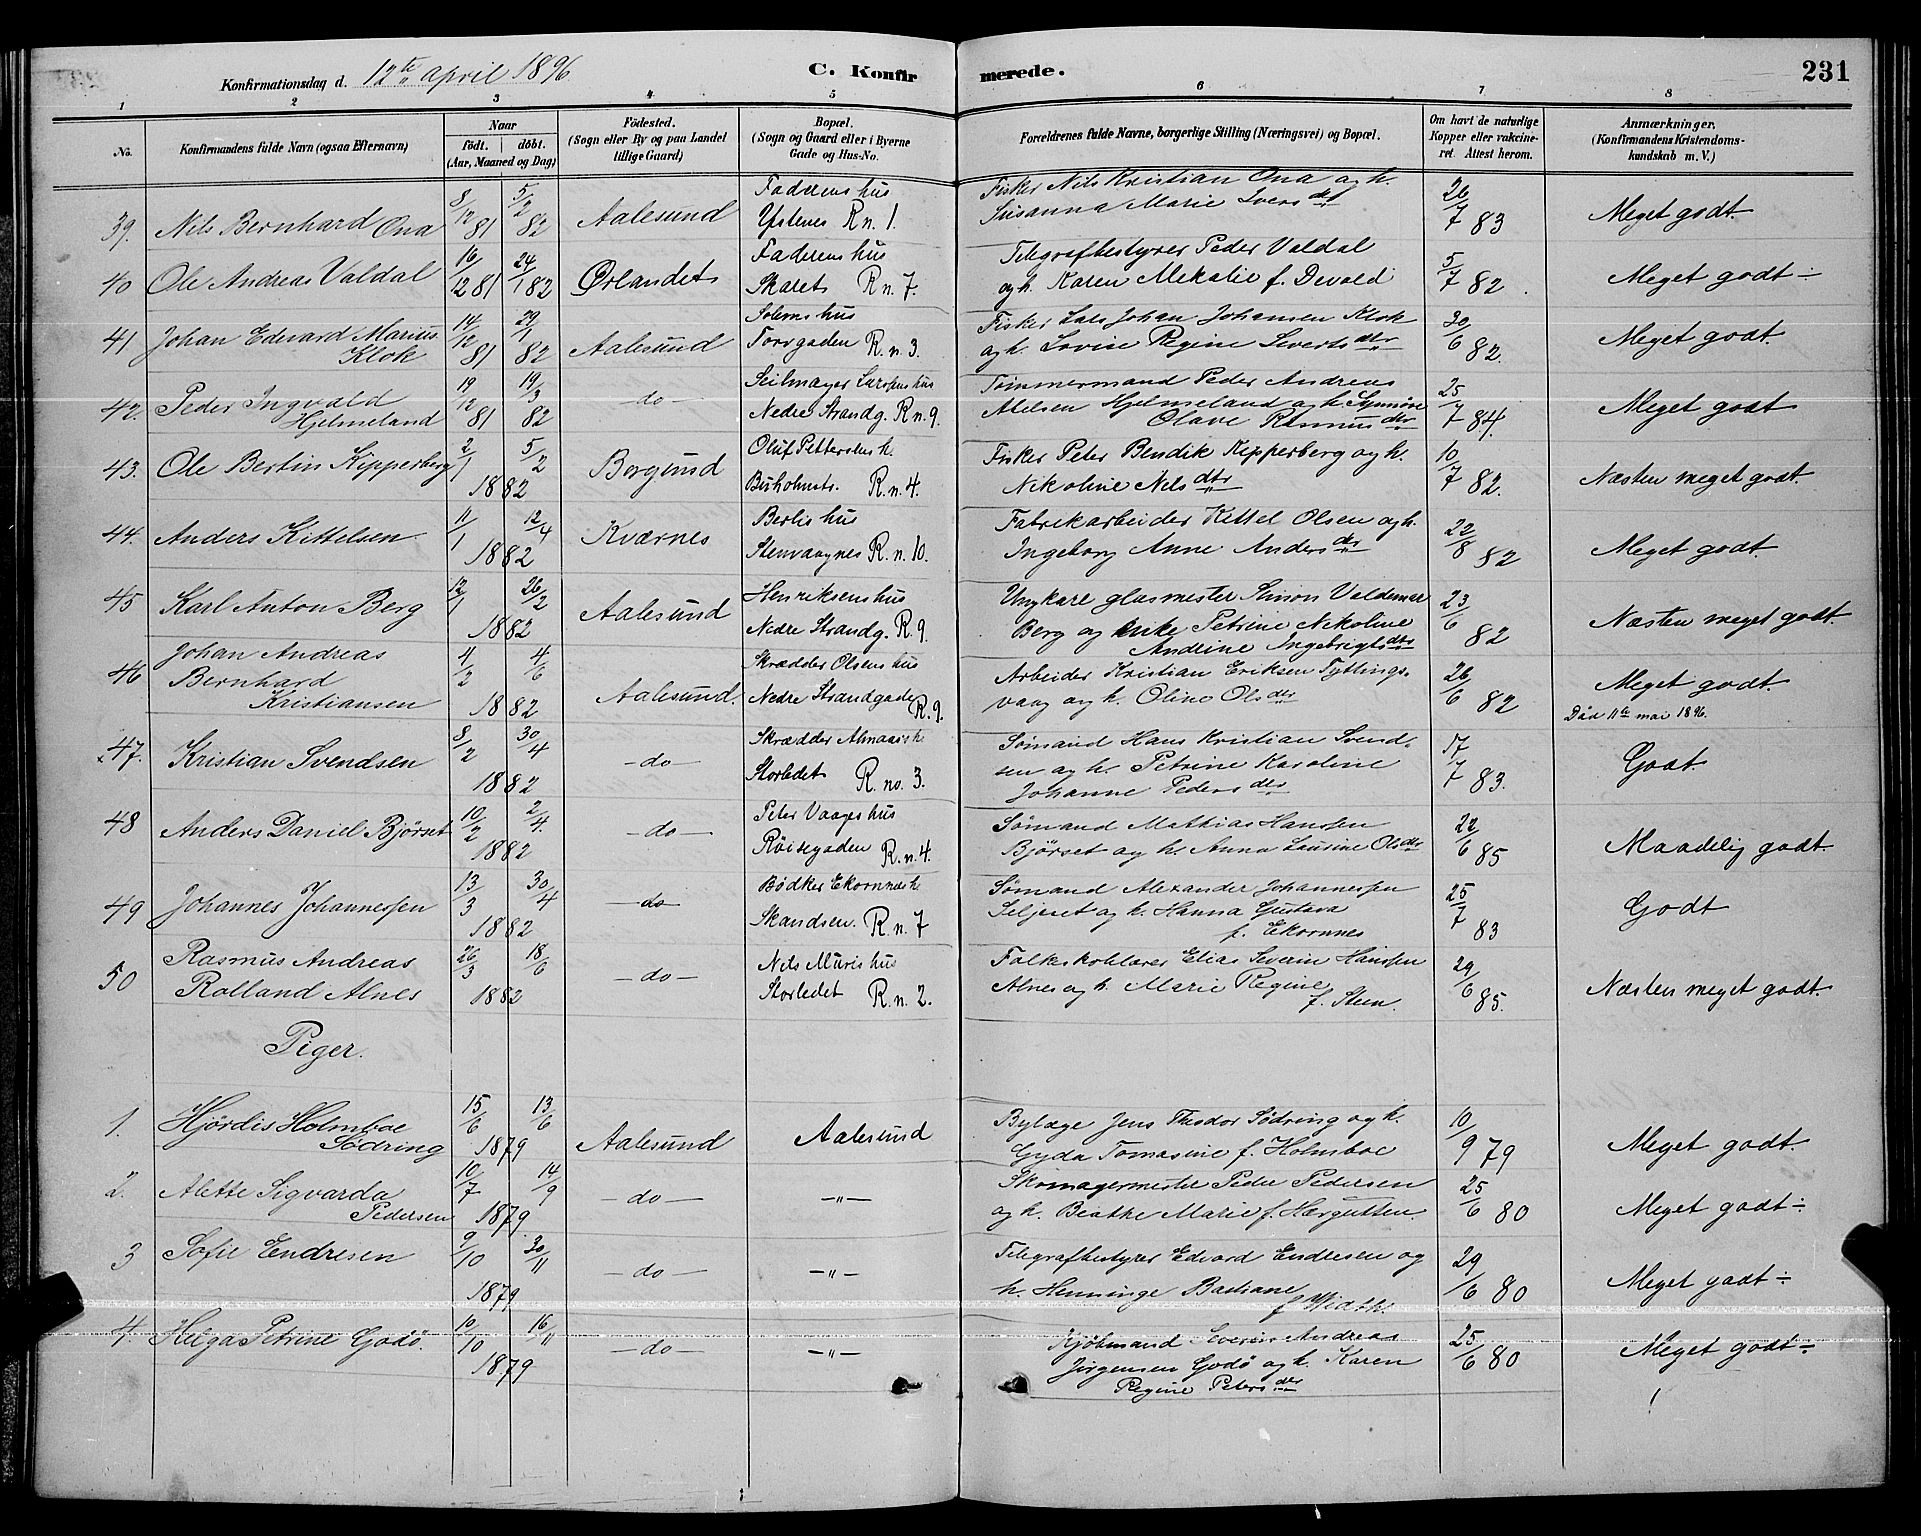 Konfirmationsdag d. 12te april 1896.
C. Konfirmerede.
231
1 2 3 4 5 6 7 8
No.
Konfirmandens fulde Navn (ogsaa Efternavn)
Naar
Födt. döbt.
(Aar, Maaned og Dag)
Födested.
(Sogn eller By og paa Landet
tillige Gaard)
Bopæl.
(Sogn og Gaard eller i Byerne
Gade og Hus-No.
Forældrenes fulde Navne, borgerlige Stilling (Næringsvei) og Bopæl.
Om havt de naturlige
Kopper eller vakcine-
ret. Attest herom.
Anmærkninger,
(Konfirmandens Kristendoms-
kundskab m. V.)
39. Nils Bernhard Ona 8/12 81 5/2 82 Aalesund
Faderens hus
Ystenes R n. 1.
Fisker Nils Kristian Ona og h.
Susanna Marie Iversdtr
26/7 83 Meget godt.
40 Ole Andreas Valdal 16/12 81 24/1 82 Ørlandet
Faderens hus
Skaret R n. 7.
Telegrafbestyrer Peder Valdal
og h. Karen Mekalie f. Devold
5/7 82. Meget godt ÷
41 Johan Edvard Marius
Klok 14/12 81 29/1 82 Aalesund
Solems hus
Torvgaden R. n. 3.
Fisker Lars Johan Johansen Klok
og h. Lovise Regine Sivertsdtr
30/6 82. Meget godt.
42. Peder Ingvald
Hjelmeland 19/12 81 19/3 82 -do-
Seilmager Larsens hus
Nedre Strandg. R n. 9.
Tømmermand Peder Andreas
Atelsen Hjelmeland og h. Synnöve
Olave Rasmusdtr
25/7 84. Meget godt
43. Ole Bertin Kipperberg 2/1 5/2 1882 Borgund
Oluf Pettersens h.
Buholmstr. R. n. 4.
Fisker Peter Bendik Kipperberg og h.
Nikoline Nilsdtr
10/7 82. Næsten meget godt.
44. Anders Kittelsen 11/1 12/4 1882 Kværnes
Berlis hus
Stenvaagnes R. n. 10.
Fabrikarbeider Kittel Olsen og h.
Ingeborg Anne Andersdtr
22/8 82 Meget godt.
45 Karl Anton Berg 12/1 26/2 1882 Aalesund
Henriksens hus
Nedre Strandg. R. 9.
Ungkare glasmester Simon Valdemar
Berg og enke Petrine Nikoline
Andrine Ingebrigtsdtr
23/6 82 Næsten meget godt
46 Johan Andreas
Bernhard
Kristiansen 4/2 4/6 1882 Aalesund.
Skrædder Olsens hus
Nedre Strandgade R. 9.
Arbeider Kristian Eriksen Tyttings-
vaag og h. Oline Olsdtr
26/6 82 Meget godt.
Död 11te mai 1896.
47. Kristian Svendsen 8/2 30/4 1882 -do-
Skrædder Almaas h.
Storledet R. no. 3.
Sømand Hans Kristian Svend-
sen og h. Petrine Karoline
Johanne Pedersdtr
17/7 83. Godt.
48 Anders Daniel Bjørset 10/2 2/4. 1882 -do-
Peter Vaages hus
Röisegaden R. n. 4.
Sømand Mathias Hanssen
Bjørset og h. Anna Laurine Olsdtr
22/6 85 Maadelig godt.
49 Johannes Johannessen 13/3 30/4 1882 -do-
Bödker Ekornnes h.
Skandsen. R. n. 7
Sømand Alexander Johannessen
Seljeset og h. Hanna Gustava
f. Ekornnes
25/7 83 Godt
50 Rasmus Andreas
Rolland Alnes 26/3 18/6 1882 -do-
Nils Muris hus
Storledet R. n. 2.
Folkeskolelærer Elias Severin Hanssen
Alnes og h. Marie Regine
f. Steen.
29/6 85. Næsten meget godt.
Piger.
1. Hjördis Holmboe
Södring 15/6 13/6 1879 Aalesund Aalesund
Bylæge Jens Theodor Södring og h.
Gyda Tomasine f. Holmboe
10/9 79 Meget godt.
2. Alette Sigvarda
Pedersen 10/7 14/9 1879. -do- -"-
Skomagermester Peder Pedersen
og h. Beathe Marie f. Hærgutten.
25/6 80 Meget godt ÷
3 Sofie Endresen 9/10 30/11 1879 -do- -"-
Telegrafbestyrer Edvard Endresen og
h. Henninge Bastiane
29/6 80 Meget godt ÷
4 Helga Petrine Godö. 10/10 16/11 1879 -do- -"-
Kjöbmand Severin Andreas
Jörgensen Godö og h. Karen
Regine Petersdtr
25/6 80 Meget godt ÷